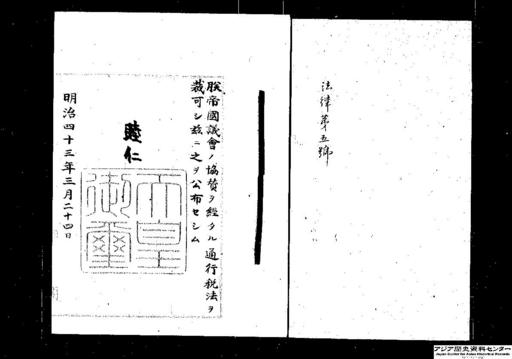 法律第五號
朕帝國議會ノ協賛ヲ經タル通行税法ヲ
裁可シ茲ニ之ヲ公布セシム
睦仁
天皇
御璽
明治四十三年三月二十四日
アジア歴史資料センター
Japan Center for Asian Historical Records